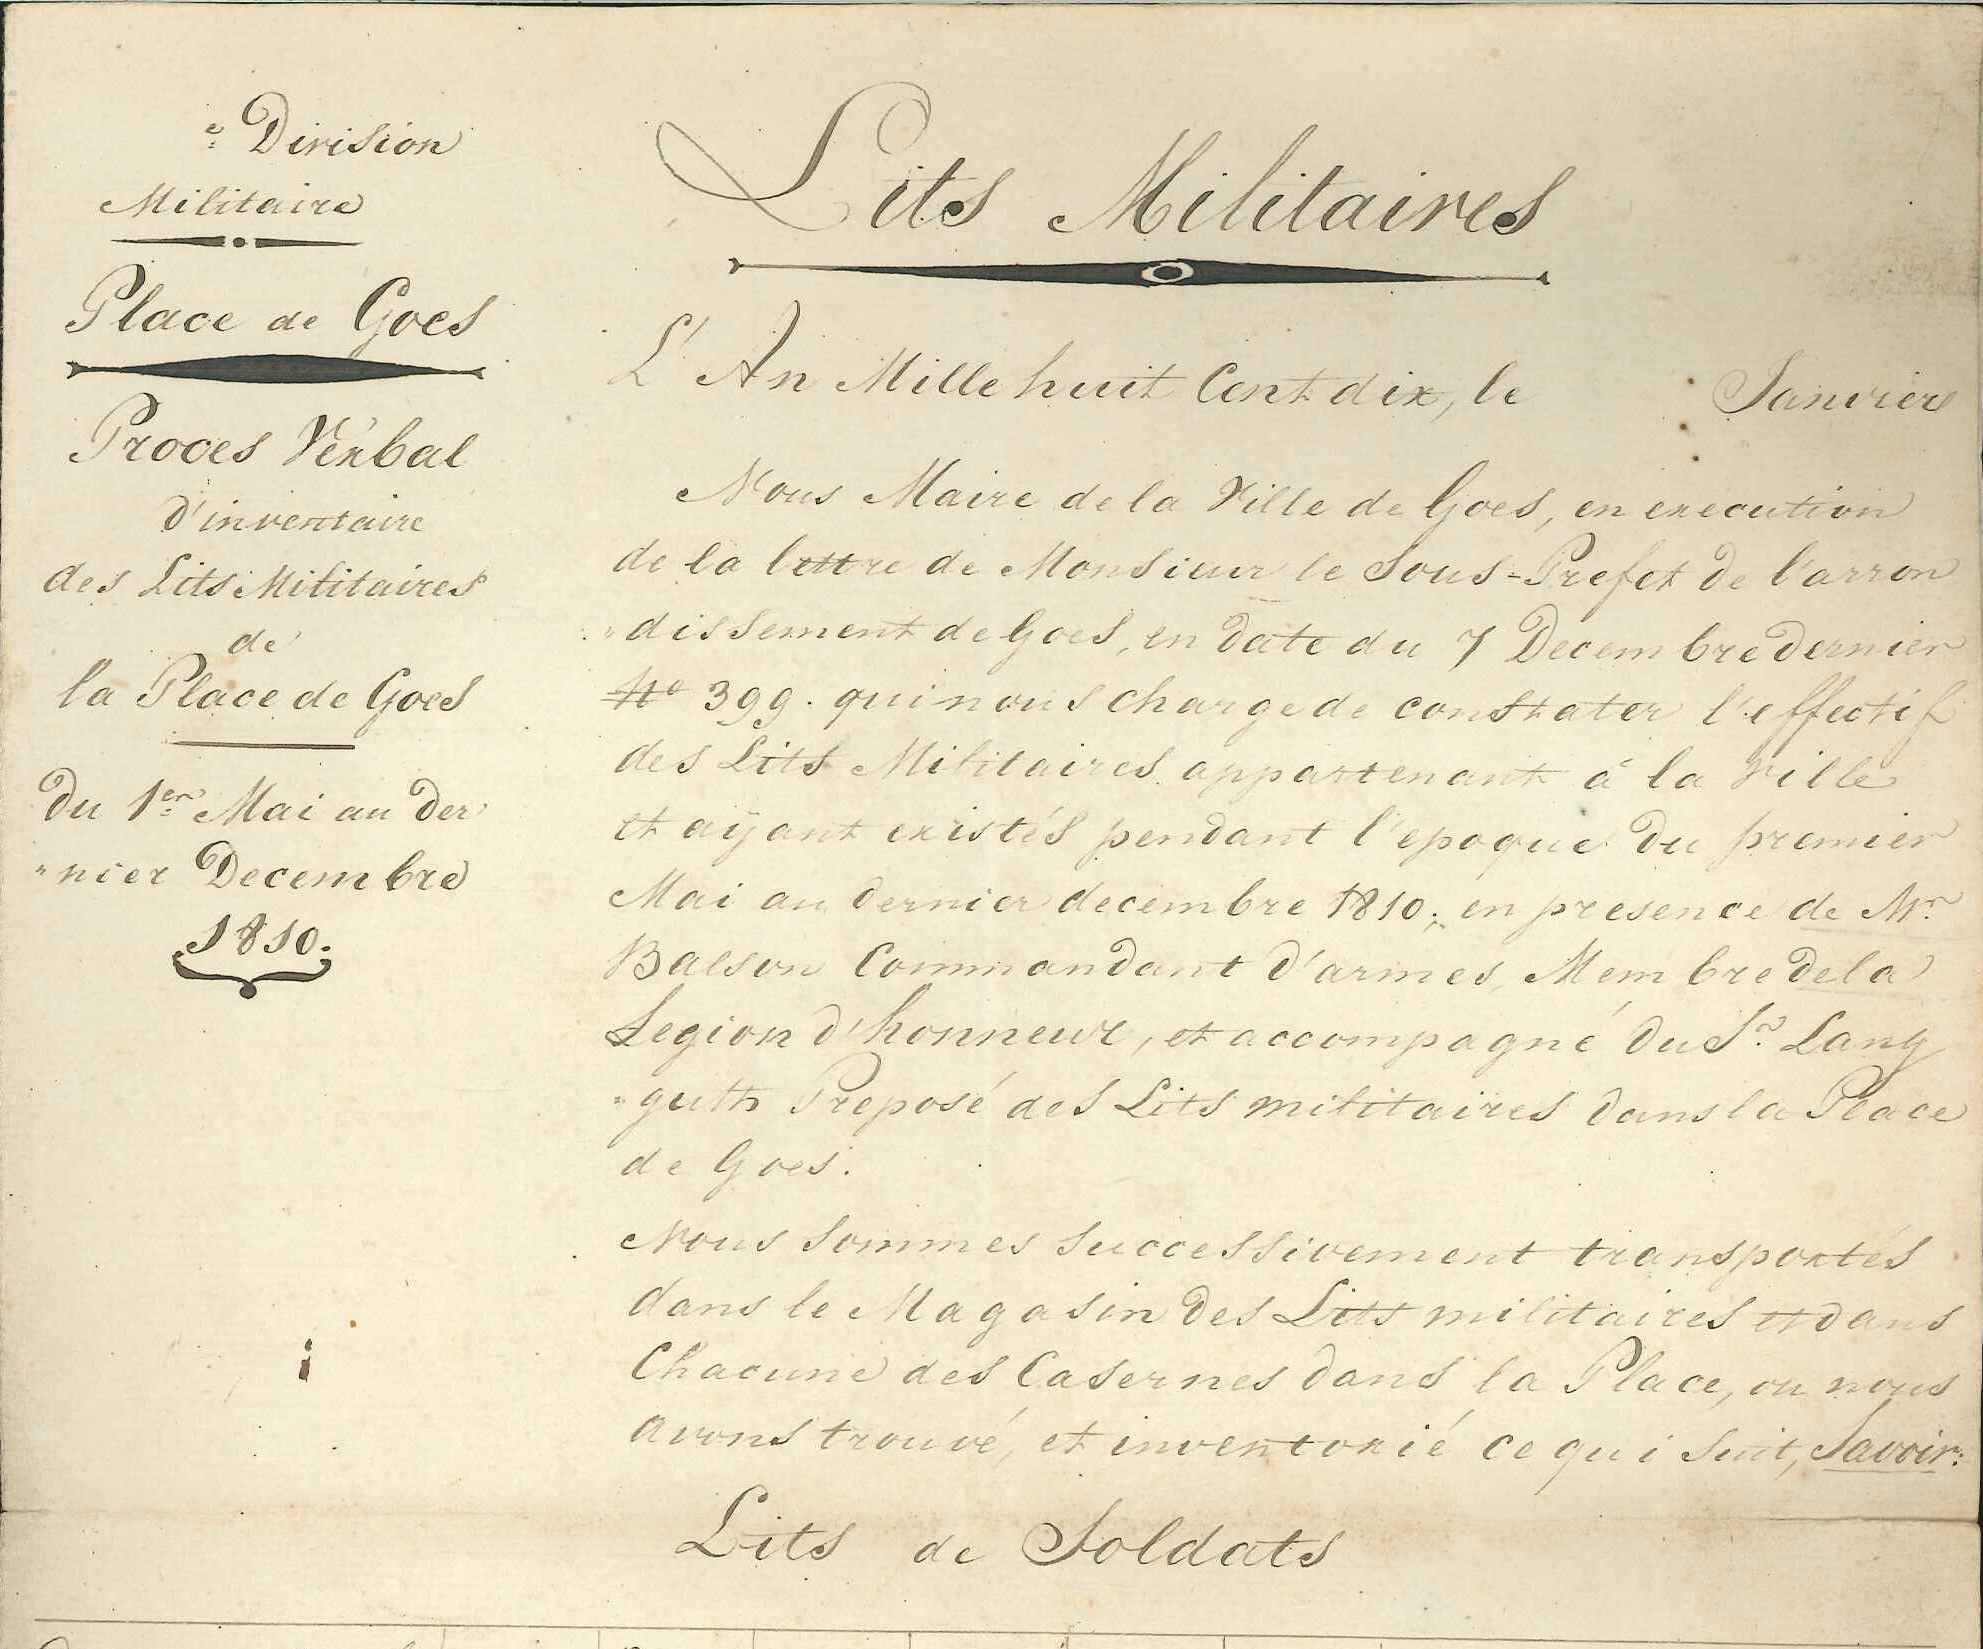 e Division
Militaire
Place de Goes
Proces Verbal
d'inventaire
des Lits Militaires
de
la Place de Goes
du 1er Mai au der
"nier Decembre
1810.
Lits Militaires
L'An Mille huit Cent dix, le Janvier
Nous Maire de la Ville de Goes, en execution
de la lettre de Monsieur le Sous-Prefet de l'arron
"dissement de Goes, en date du 7 Decembre dernier
No 399. qui nous charge de constater l'effectif
des Lits Militaires appartenant à la Ville
et aÿant existés pendant l'epoque du premier
Mai au dernier decembre 1810; en presence de Mr.
Balson Commandant d'armes, Membre de la
Legion d'honneur, et accompagné du Sr. Lang
"guth Preposé des Lits militaires dans la Place
de Goes.
Nous sommes successivement transportés
dans le Magasin des Lits militaires et dans
Chacune des Casernes dans la Place, ou nous
avons trouvé, et inventorié ce qui suit, Savoir:
Lits de Soldats